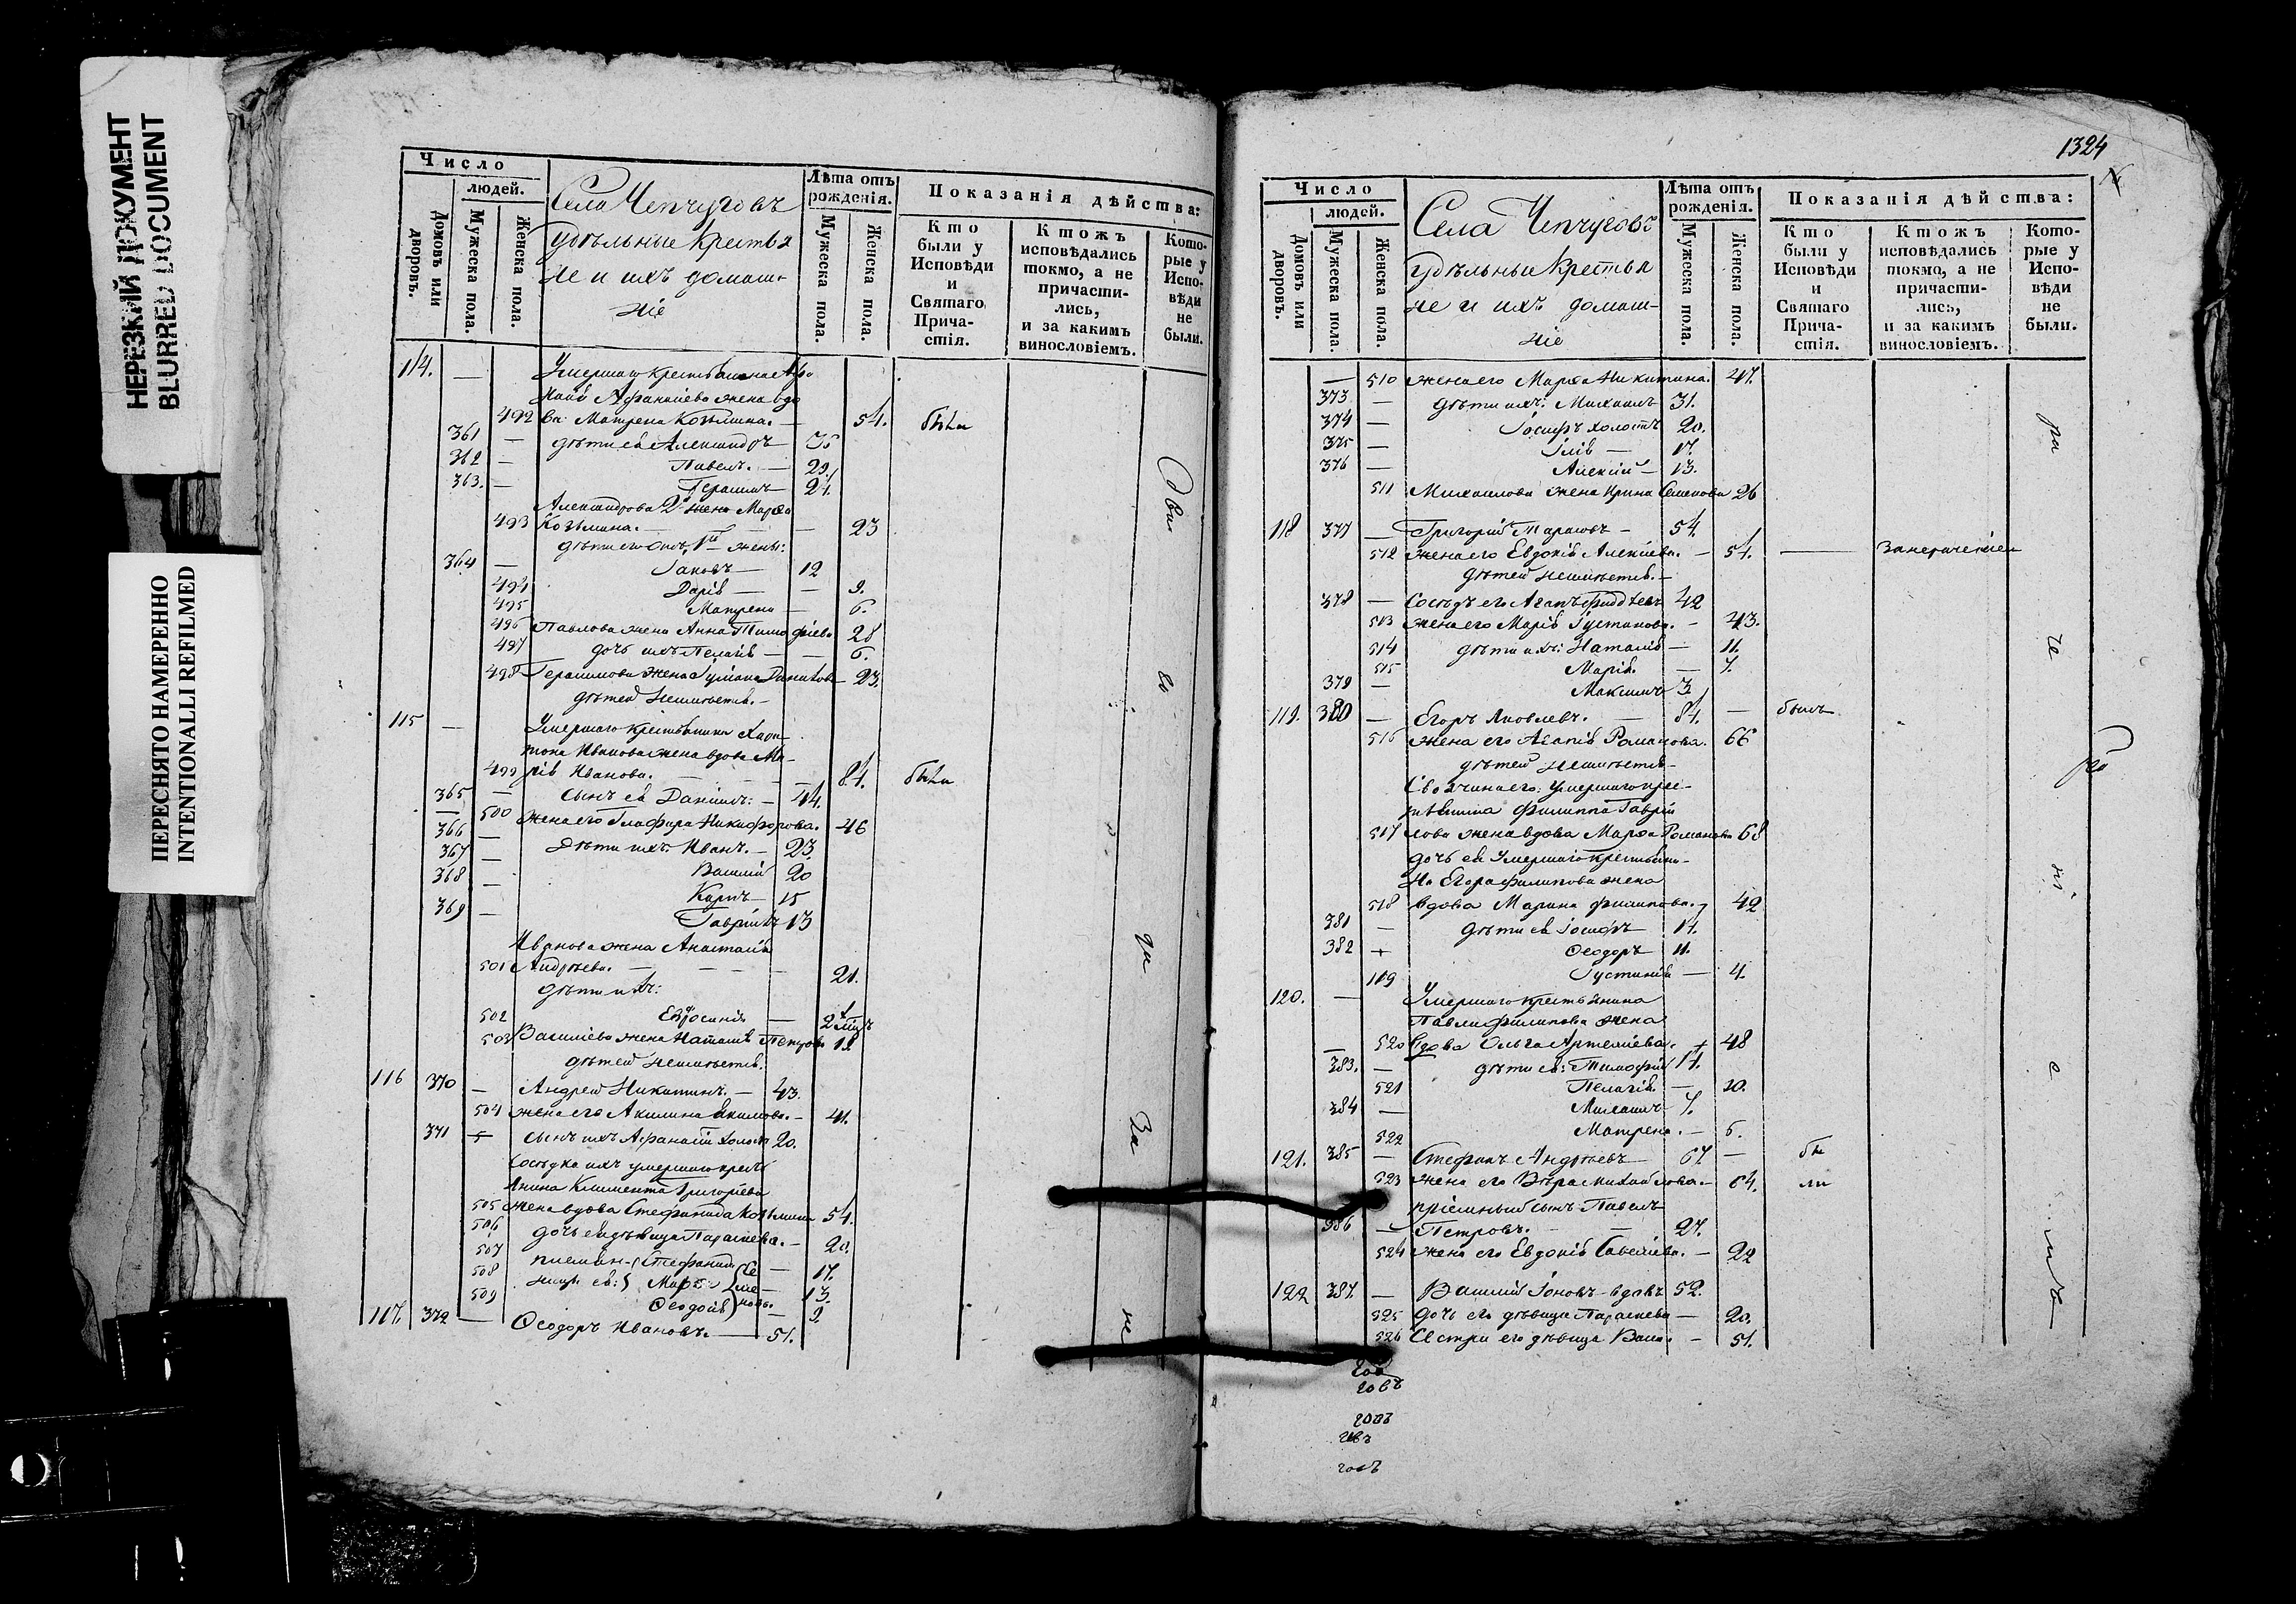 НЕРЕЗКИЙ ДОКУМЕНТ
BLURRED DOCUMENT
ПЕРЕСНЯТО НАМЕРЕННО
INTENTIONALLI REFILMED
Число
людей.
Домовъ или дворовъ.
Мужеска пола.
Женска пола.
Села Чепчуговъ
удѣльные крестья
не и ихъ домаш-
ніе
Лѣта отъ рожденія.
Мужеска пола.
Женска пола.
Показанія дѣйства:
Кто были у Исповѣди и Святаго Прича-стія.
Ктожъ исповѣдались токмо, а не причасти-лись, и за какимъ винословіемъ.
Кото-рые у Испо-вѣди не были.
114. —
Афанасіева жена вдо
492 ва Матрена Козьмина. — 54. была
361 — дѣти ея Александръ 35
362 — Павелъ. — 29.
363. — Герасимъ 24.
Александрова 2я жена Марѳа
493 Козьмина. — 23
дѣти его отъ 1й жены:
364 — Іаковъ — 12
494 Дарія — 9.
495 Матрена — 6.
496 Павлова жена Анна Тимофіева 28
497 дочь ихъ Пелагія — 6.
498 Герасимова жена Данилова 23.
дѣтей неимѣетъ.
115 — Умершаго крестьянина Хари-
тона Иванова жена вдова Ма-
499 рія Иванова. — 84. была
365 — сынъ ея Даніилъ: — 44.
500 жена его Глафира Никифорова. 46
366 — дѣти ихъ: Иванъ. — 23.
367 — Василій 20
368 — Карпъ — 15
369 — Гавріилъ 13
Иванова жена Анастасія
501 Андреева. — 21.
дѣти ихъ:
502 Евфросинія —
503 Василіева жена Наталія Петрова 18
дѣтей неимѣетъ.
116 370 — Андрей Никитинъ. — 43.
504 жена его Акилина Акимова. — 41.
371 — сынъ ихъ Афанасій холостъ 20.
Сосѣдка ихъ умершаго кресть
янина Климента Григоріева
505 жена вдова Стефанида Козьмина 54.
506 дочь ея дѣвица Параскева. — 20.
507 племян- Стефанида Се — 17.
508 ницы ея: Марѳа ме — 13.
509 Ѳеодосія нова. — 9.
117. 372 — Ѳеодоръ Ивановъ. — 51.
За
не
1324
Число
людей.
Домовъ или дворовъ.
Мужеска пола.
Женска пола.
Села Чепчугово
удѣльные крестья
не и ихъ домаш-
ніе
Лѣта отъ рожденія.
Мужеска пола.
Женска пола.
Показанія дѣйства:
Кто были у Исповѣди и Святаго Прича-стія.
Ктожъ исповѣдались токмо, а не причасти-лись, и за какимъ винословіемъ.
Кото-рые у Испо-вѣди не были.
— 510 жена его Марѳа Никитина. 47.
373 — дѣти ихъ: Михаилъ 31.
374 — Іосифъ холостъ 20.
375 — Илія — 17.
376 — Алексій — 13.
511 Михаилова жена Ирина Семенова 26
118 377 — Григорій Тарасовъ — 54.
512 жена его Евдокія Алексіева. — 54. —
дѣтей неимѣетъ. —
378 — Сосѣдъ его Агапъ Фаддѣевъ 42
513 жена его Марія Іустинова. — 43.
514 дѣти ихъ: Наталія — 11.
515 Марія. — 7.
379 — Максимъ 3.
119. 380 — Егоръ Яковлевъ. — 84. — былъ
516 жена его Агапія Романова. 66
дѣтей неимѣетъ —
умершаго кре-
стьянина Филиппа Гаврі
517 лова жена вдова Марѳа Романова 68
дочь ея умершаго крестьяни-
на Егора Филипова жена
518 вдова Марина Филипова. 42
381 — дѣти ея Іосифъ 17.
382 + Ѳеодоръ 11.
119 Іустинія — 4.
120. — Умершаго крестьянина
Павла Филипова жена
— 520 вдова Ольга Артеміева. + 48
383. — дѣти ея: Тимофей 17.
521 Пелагія. — 10.
384 — Михаилъ 7.
522 Матрена. — 5.
121. 385 — Стефанъ Андреевъ 67. — бы
523 жена его Вѣра Михайлова. — 64. ли
пріемный сынъ Павелъ
386 — Петровъ. — 27.
524 жена его Евдокія Савеліева. — 22
122 387. — Василій Іоновъ — вдовъ 52.
525 дочь его дѣвица Параскева — 20.
526 Сестра его дѣвица — 51.
ра
че
ні
е
мъ